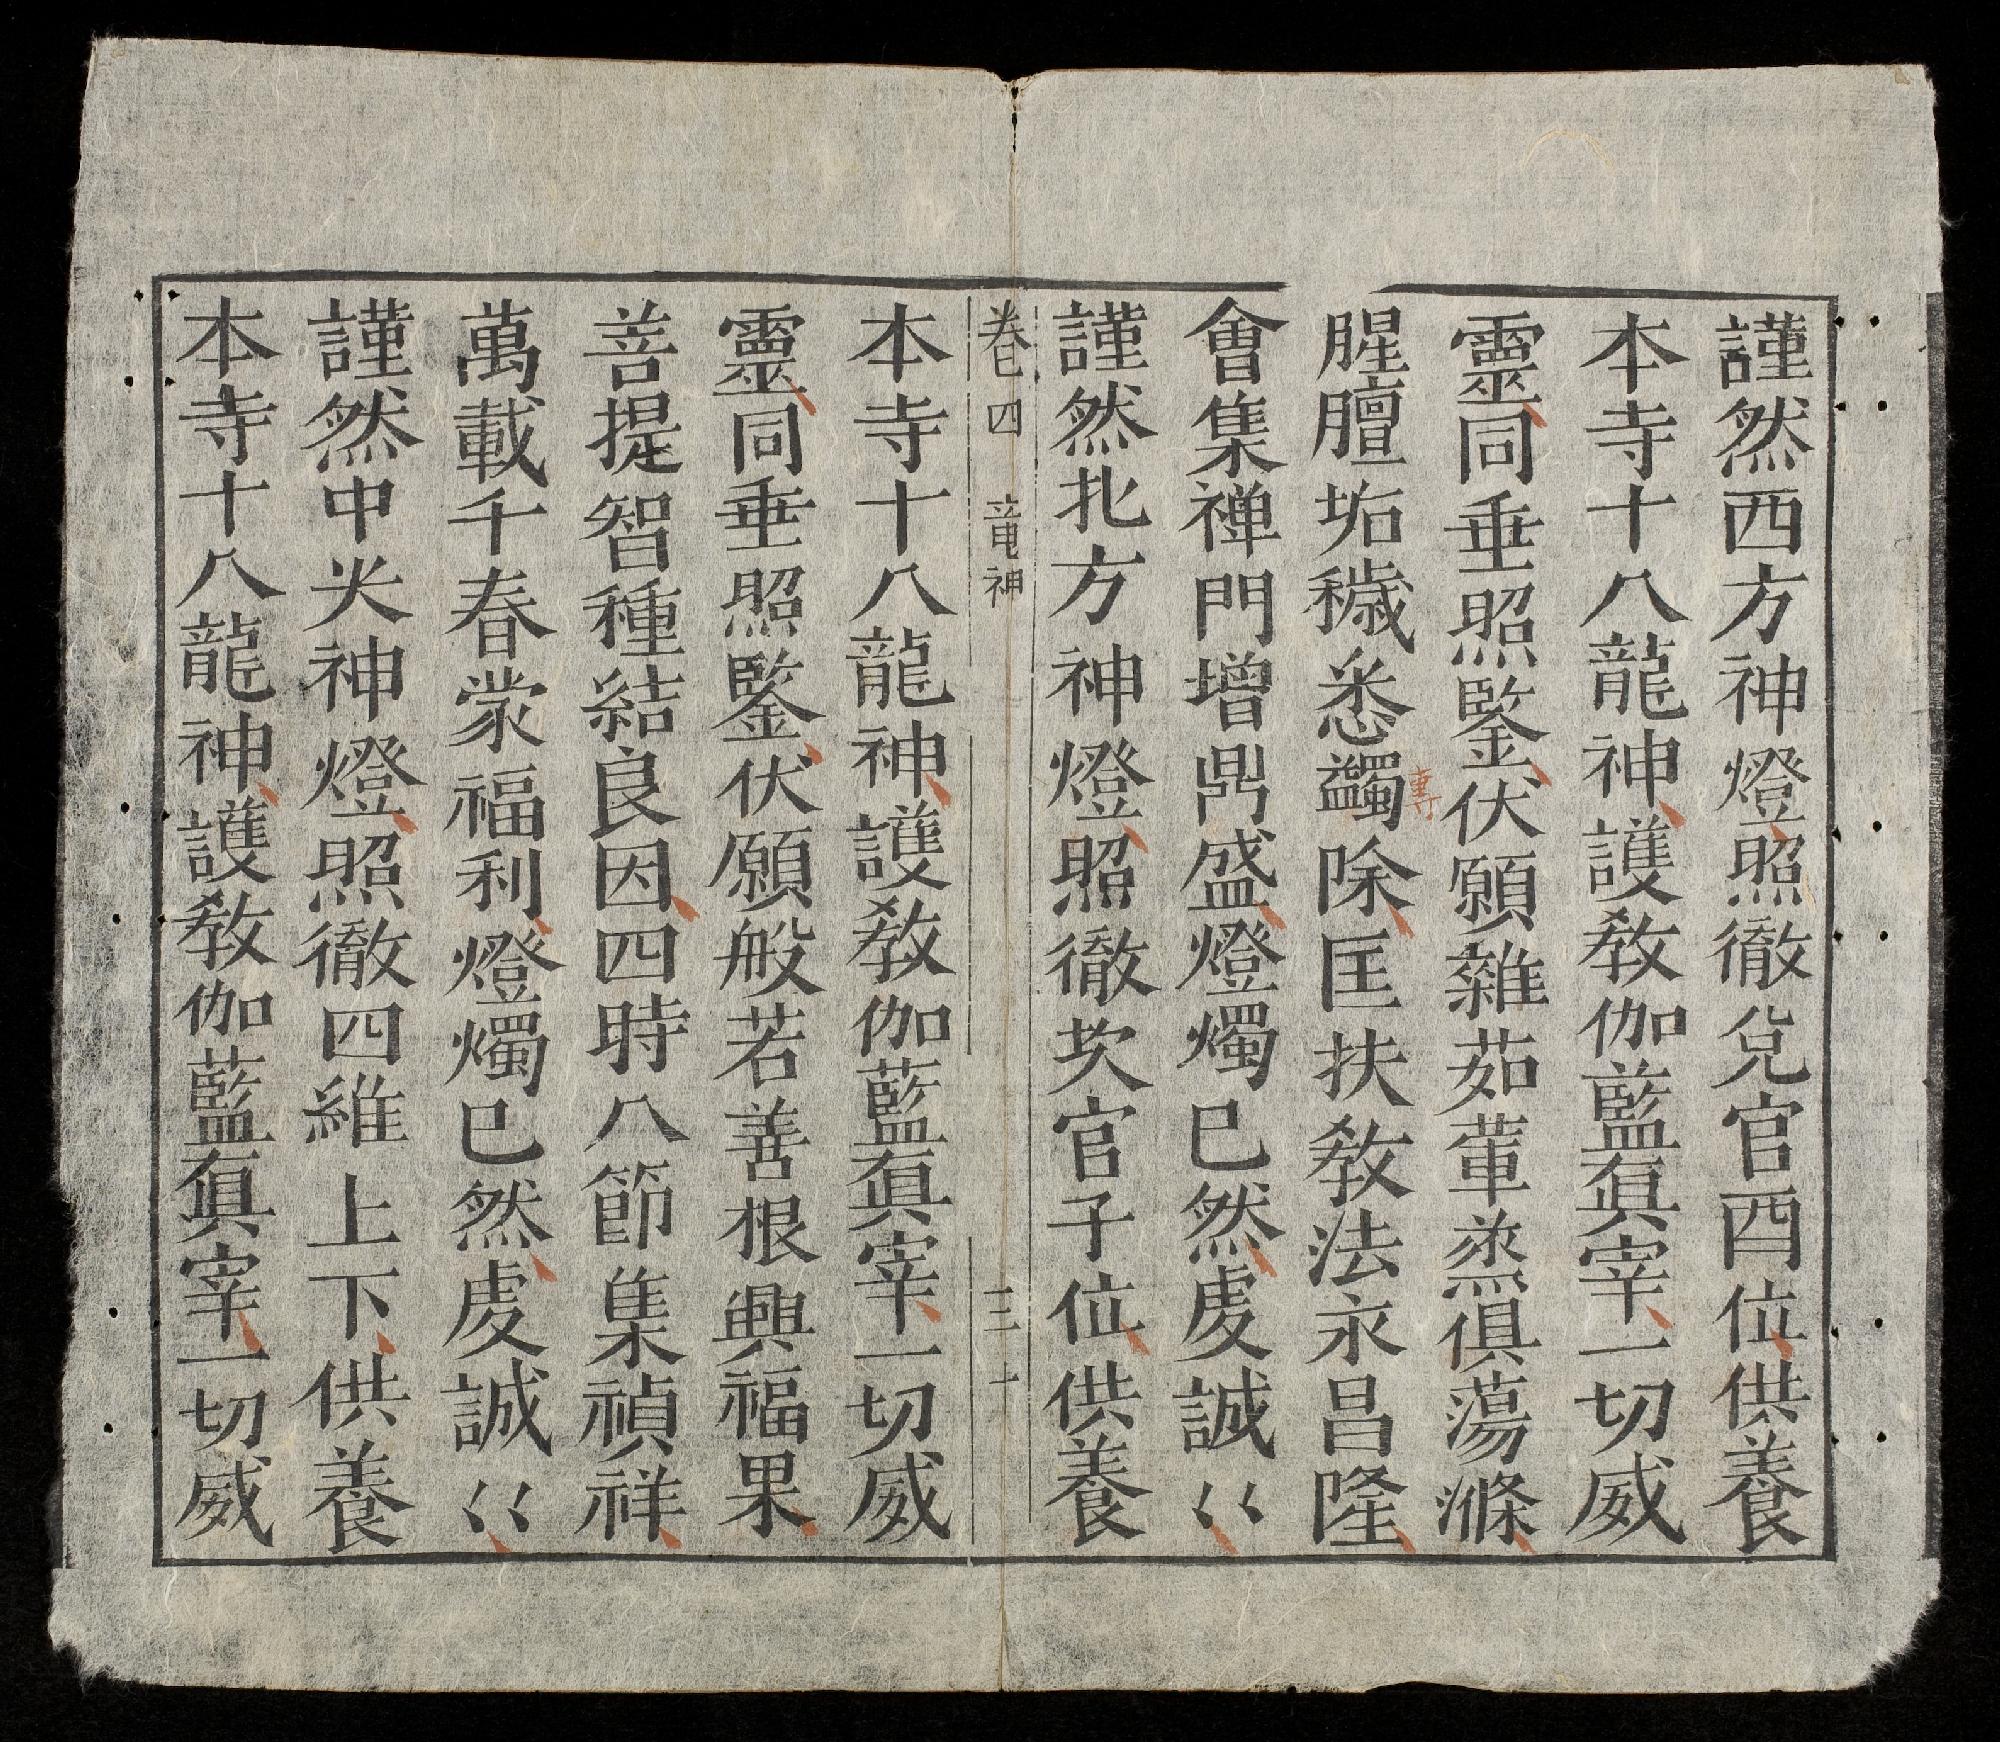 謹然西方神燈照徹兌官酉位供養
本寺十八龍神護教伽藍真宰一切威
靈同垂照鑒伏願雜茹葷烝俱蕩滌
腥膻垢穢悉蠲除匡扶教法永昌隆
專
會集禅門增鼎盛燈燭已然虔誠〻
謹然北方神燈照徹坎官子位供養
卷四 竜神 三十
本寺十八龍神護教伽藍真宰一切威
靈同垂照鑒伏願般若善根興福果
菩提智種結良因四時八節集禎祥
萬載千春蒙福利燈燭已然虔誠〻
謹然中央神燈照徹四維上下供養
本寺十八龍神護教伽藍真宰一切威